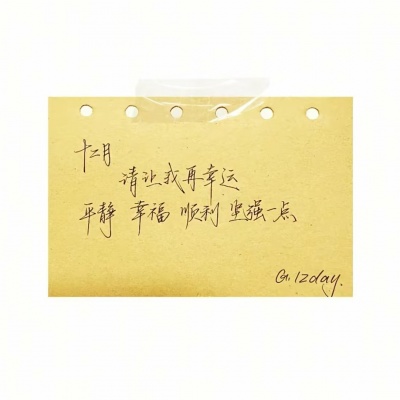 十二月
请让我再幸运
平静 幸福 顺利 坚强一点
G.12day.